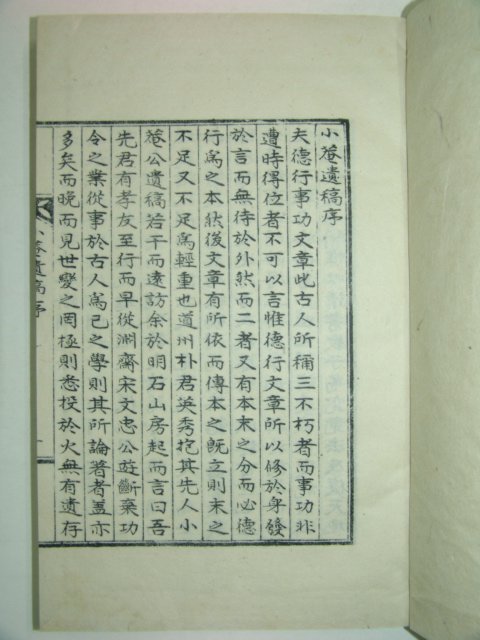 小菴遺稿序
夫德行事功文章此古人所稱三不朽者而事功非
遭時得位者不可以言惟德行文章所以修於身發
於言而無待於外然而二者又有本末之分而必德
行爲之本然後文章有所依而傳本之旣立則末之
不足又不足爲輕重也道州朴君英秀抱其先人小
菴公遺稿若干而遠訪余於明石山房起而言曰吾
先君有孝友至行而早從淵齋宋文忠公遊斷棄功
令之業從事於古人爲己之學則其所論著者盖亦
多矣而晩而見世變之罔極則悉投於火無有遺存
菴遺稿序